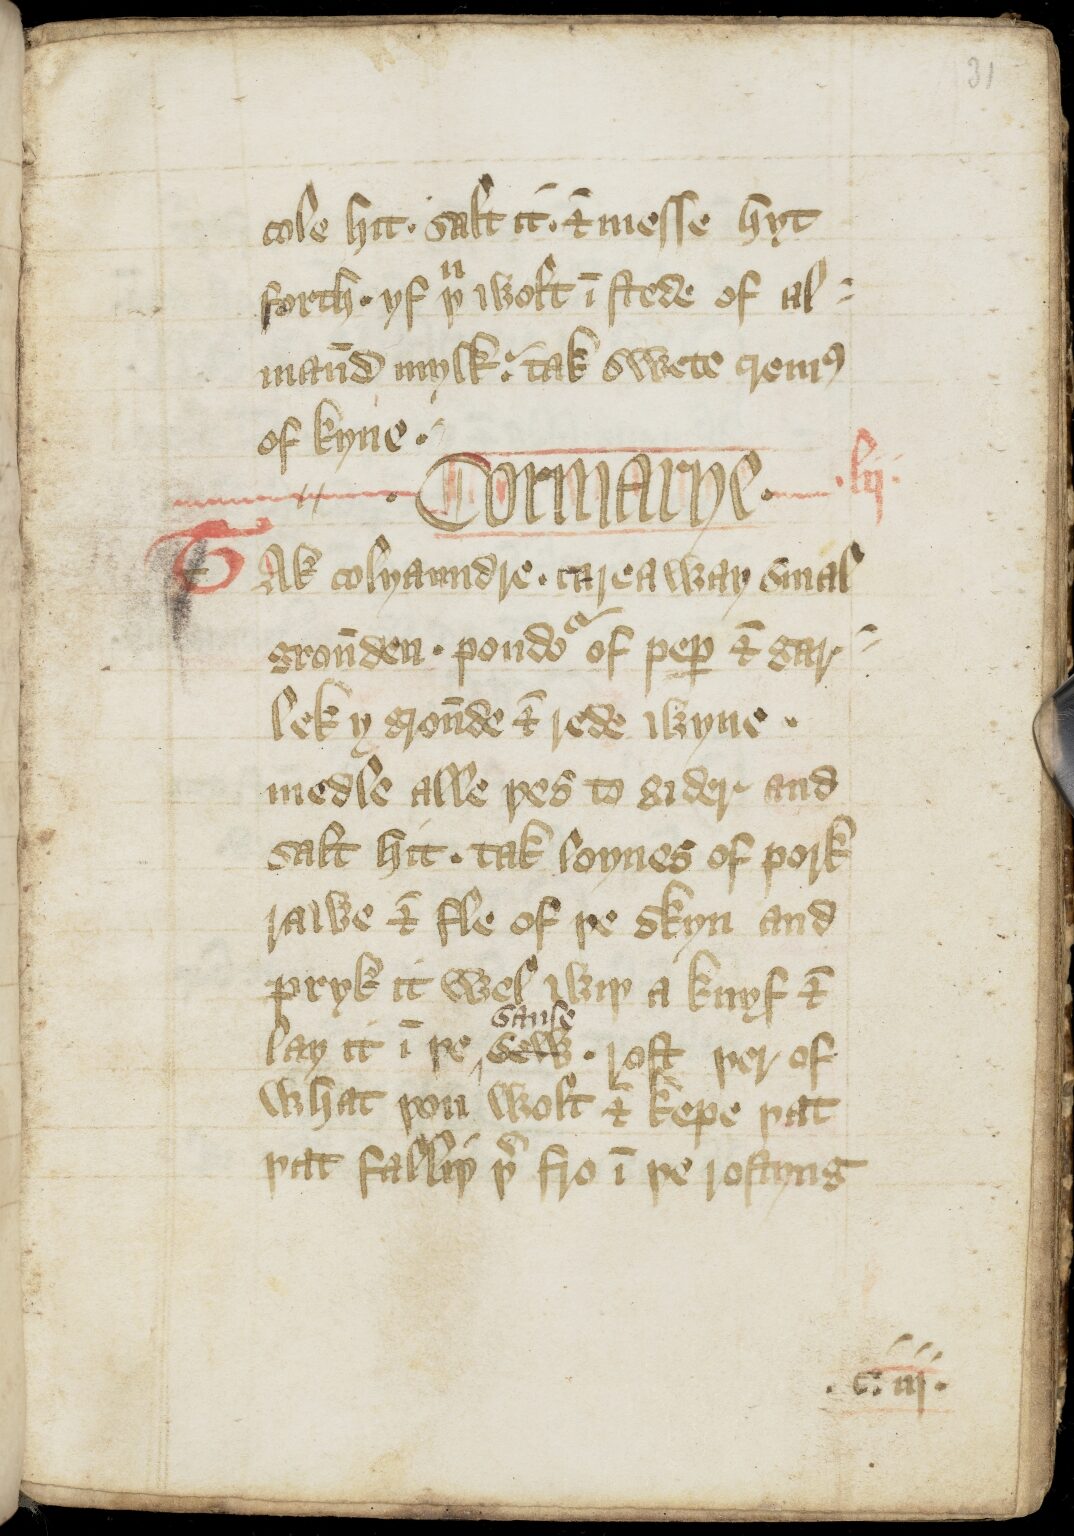 31
cole hit. salt it. & messe hyt
forth. yf þu wolt ī stede of al=
maūd mylk. tak swete crem9
of kyne.
Cormarye. lij.
TAk colyaundre. careaway smal
groūden. poudor of pep & gar=
lek y groūde & rede wyne.
medle alle þes to gider and
salt hit. tak loynes of pork
rawe & fle of þe skyn and
pryk it wel wiþ a knyf &
lay it ī þe sause sew. rost þer of
what þou wolt & kepe þat
þat falliþ þer fro ī þe rostyng
.c. iij.